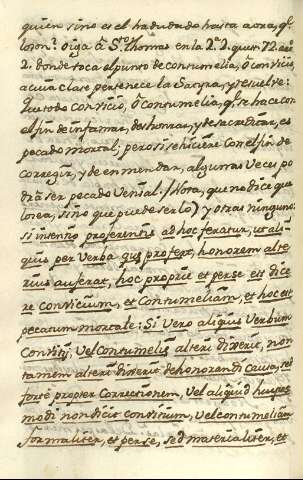 quien sino es el ha dudado hasta aora, q.e
lo son? Oiga â S.to Thomas en la 2.a 2. quæst. 72. art.
2. donde toca el punto de contumelia, ô convicio,
a cuia clase pertenece la Satyra, y resuelve:
Que todo convicio, ô contumelia, q.e se hace con
el fin de infamar, deshonrar, y desacreditar, es
pecado mortal; pero si se hiciere con el fin de
corregir, y de enmendar, algunas veces po
drâ ser pecado venial. (Nota, que no dice que
lo sea, sino que puede serlo) y otras ninguno:
si intentio proferentis ad hoc feratur, ut ali-
quis per verba, quæ profert, honorem alte
rius auferat, hoc propriè et per se est dice
re convicium, et contumeliam, et hoc est
peccatum mortale: Si vero aliquis verbum
convitij, vel contumeliæ alteri dixerit, non
tamen alteri dixerit dehonorandi causa, sed
forte propter correctionem, vel aliquid hujus
modi non dicit convitium, vel contumeliam
formaliter, et per se, sed materialiter, et